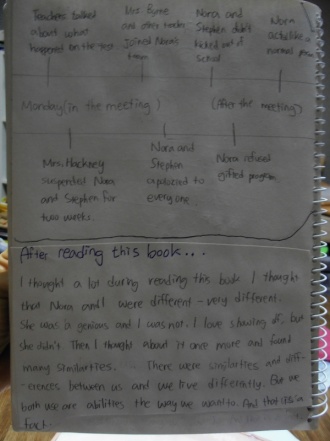 Teachers talked
about what
happened on the test.
Mrs Byrne
and other teacher
Joined Nora's
team
Nora and
Stephen didn't
kicked out of
school
Nora
acts like a
normal person
Monday (in the meeting)
(After the meeting)
Mrs. Hackney
suspended Nora
and Stephen for
two weeks.
Nora and
Stephen
apologized to
everyone.
Nora refused
gifted program
After reading this book...
I thought a lot during reading this book. I thought
that Nora and I were different - very different.
She was a genious and I was not. I love showing off, but
she didn't. Then I thought about it once more and found
many similarties. There were similarties and diff-
erences between us and we live differently. But we
both use are abilities the way we want to. And that is a
fact.